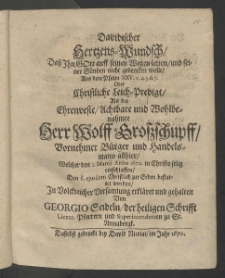 Davidischer
Hertzens-Wundsch/
Daß Ihn GOtt auff seinen Wegen leiten/ und sei-
ner Sünden nicht gedencken wolle/
Aus dem Psalm XXV. v. 4. 5. 6. 7.
Oder
Christliche Leich-Predigt/
Als der
Ehrenveste/ Achtbare und Wohlbe-
nahmte
Herr Wolff Großschupff/
Vornehmer Bürger und Handels-
mann allhier/
Welcher den Martii Anno 1670. in Christo selig
entschlaffen/
Den 6. Christlich zur Erden bestat-
tet worden/
In Volckreicher Versamlung erkläret und gehalten
Von
GEORGIO Seideln/ der heiligen Schrifft
Licent. Pfarrern und Superintendenten zu St.
Annabergk.
Daselbst gedruckt bey David Nicolai/ im Jahr 1670.